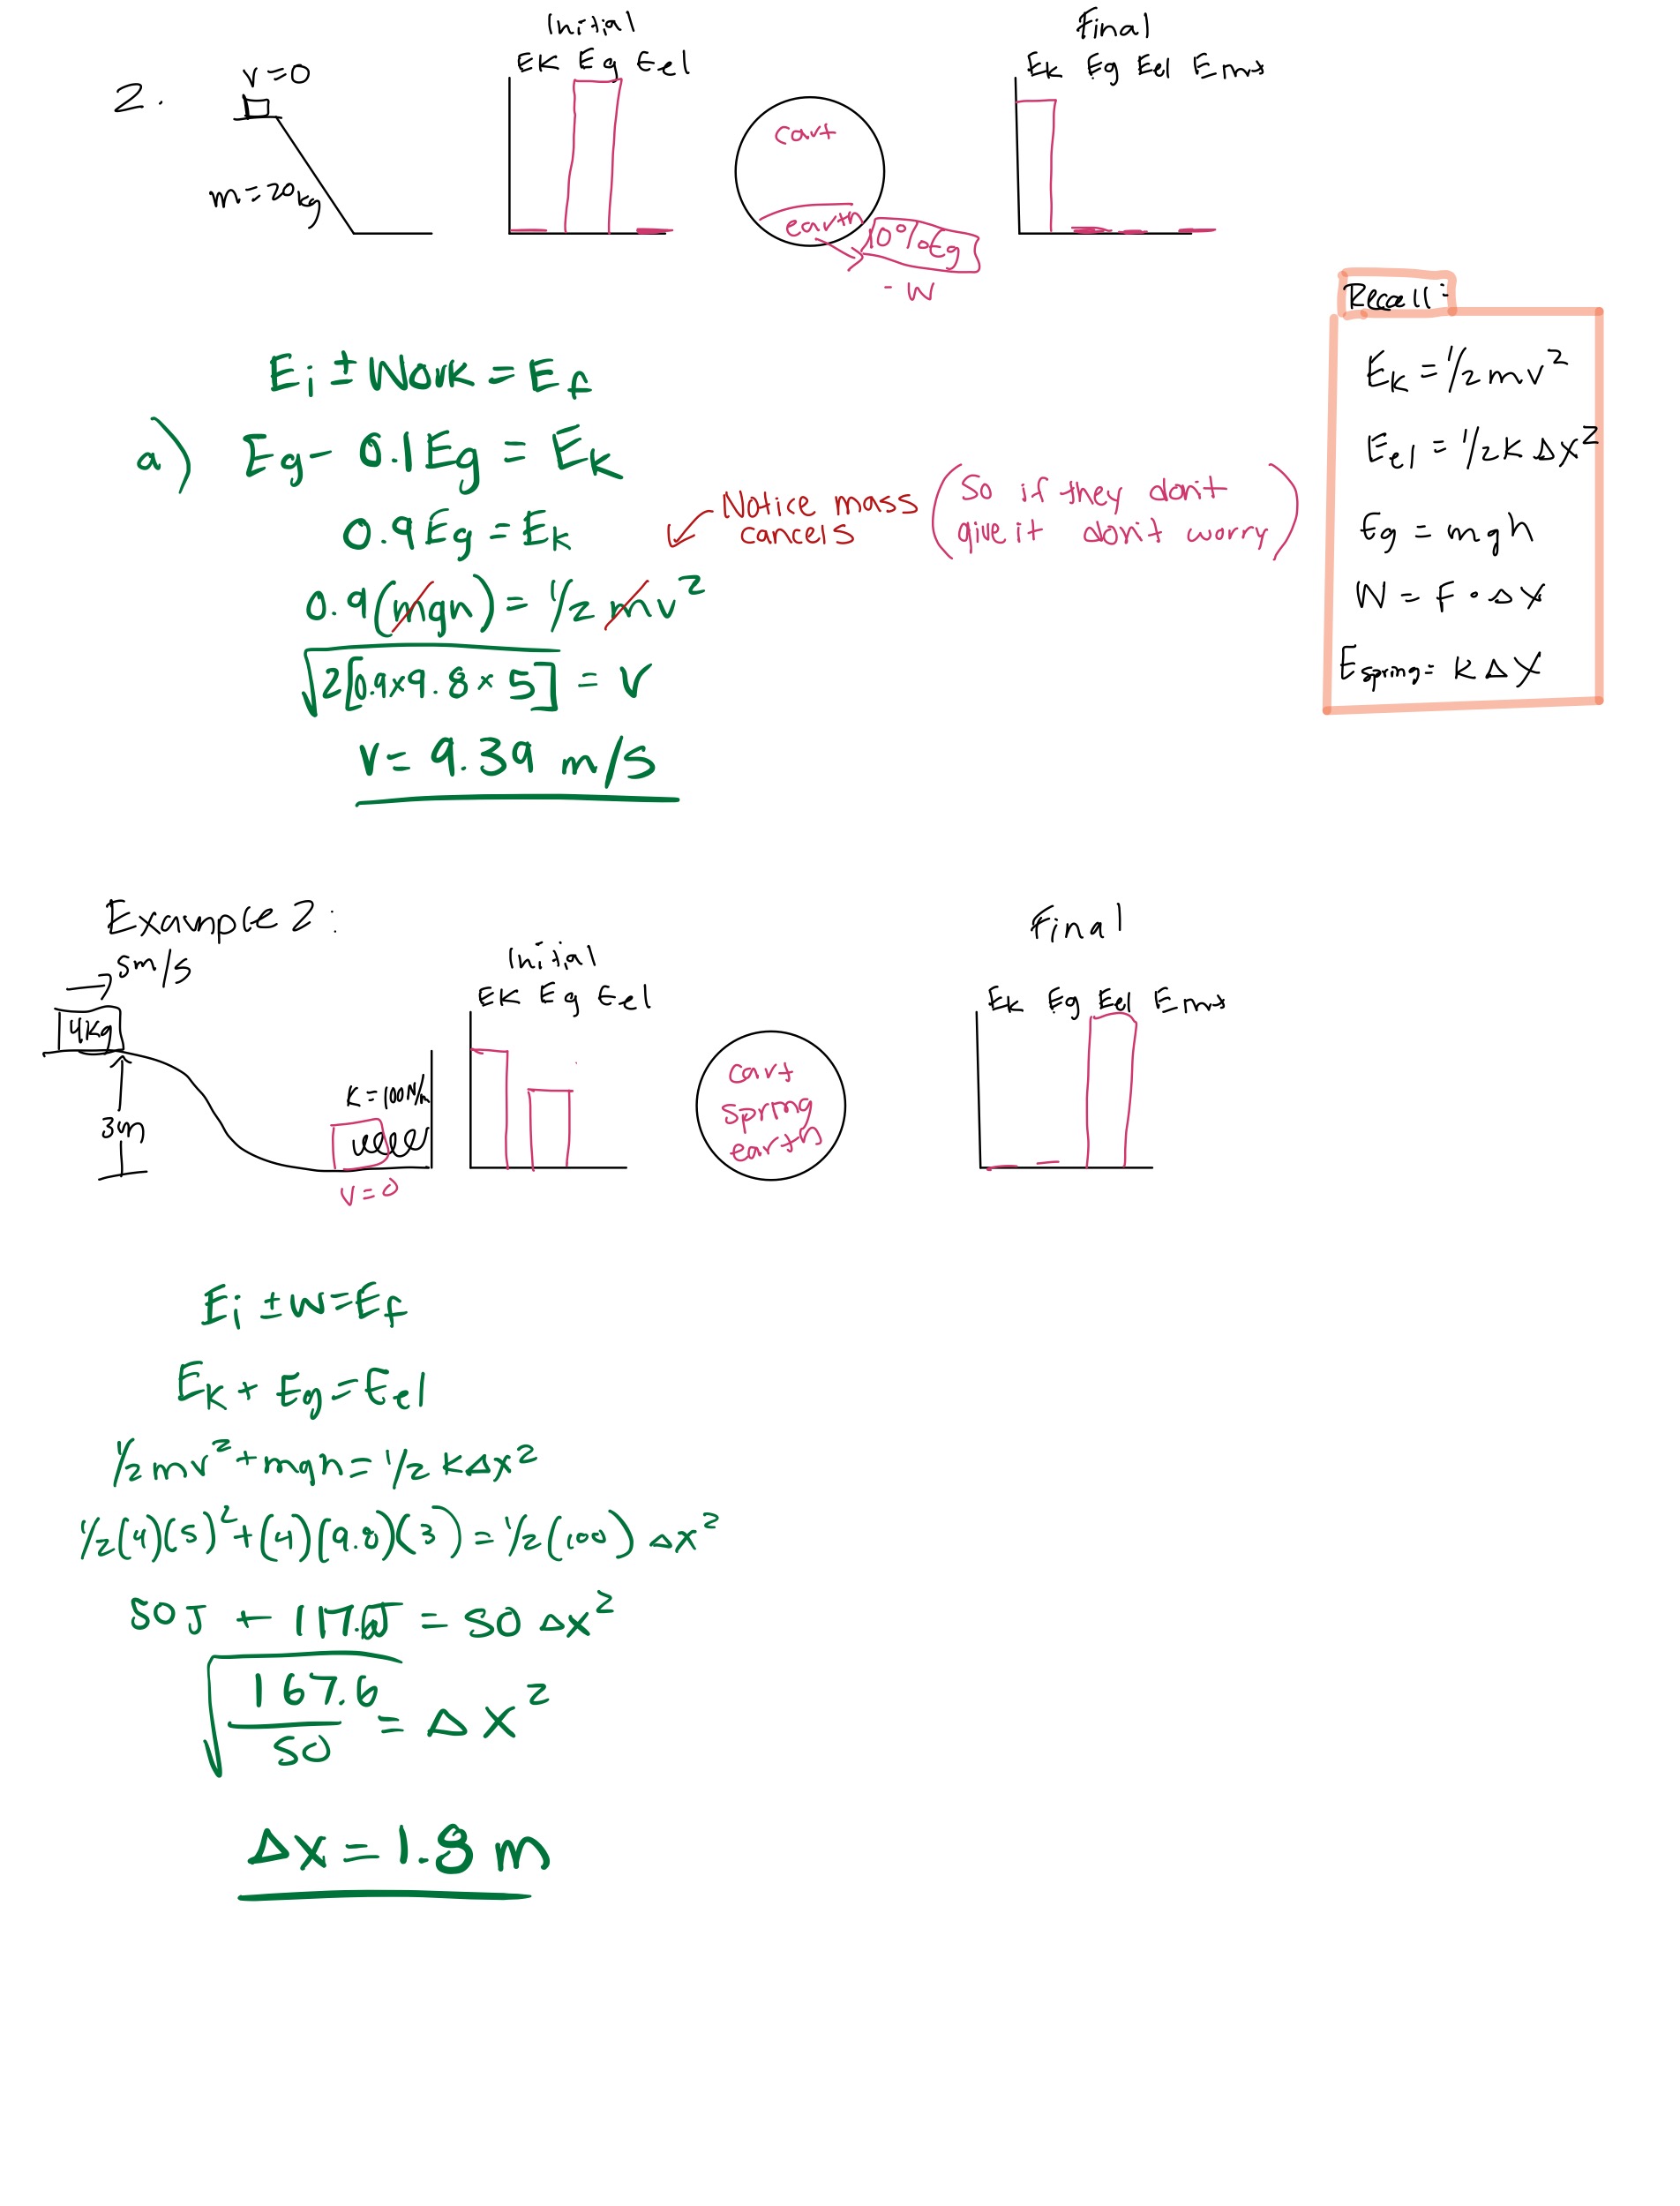 2.
v=0
m=20kg
Initial
EK Eg Eel
cart
earth
10% Eg
- W
Final
Ek Eg Eel Emx
Recall:
EK = 1/2 mv²
Eel = 1/2 k Δx²
Eg = mgh
W = F • Δx
Espring = k Δx
Ei ± Work = Ef
a) Eg - 0.1Eg = Ek
0.9Eg = Ek
Notice mass cancels
(So if they don't
give it don't worry)
0.9(mgh) = 1/2 mv²
√2[0.9×9.8×5] = v
v = 9.39 m/s
Example 2:
5m/s
4kg
3m
K=100N/m
v=0
Initial
EK Eg Eel
cart
spring
earth
Final
Ek Eg Eel Emx
Ei ± W = Ef
EK + Eg = Eel
1/2 mv² + mgh = 1/2 kΔx²
1/2(4)(5)² + (4)(9.8)(3) = 1/2(100) Δx²
50J + 117.6J = 50 Δx²
√167.6/50 = Δx²
Δx = 1.8 m